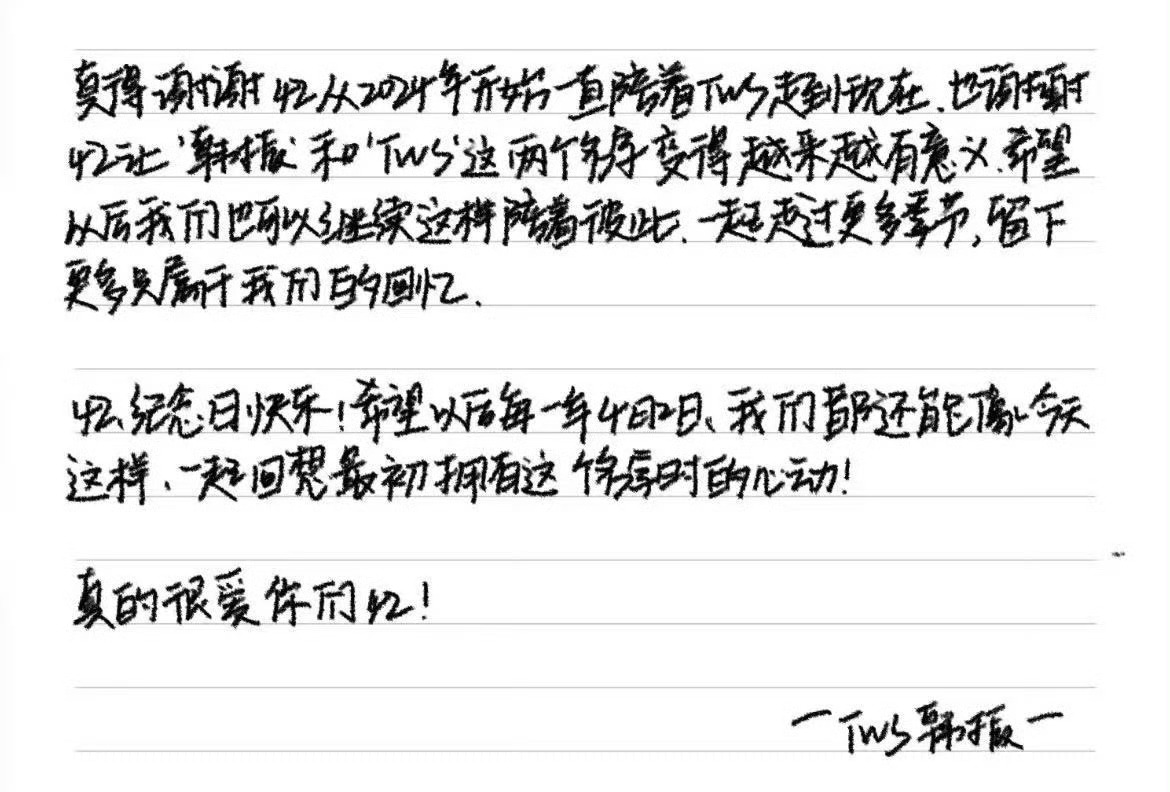 真得谢谢42从2024年开始一直陪着TWS走到现在、也谢谢
42让‘韩振’和‘TWS’这两个名字变得越来越有意义、希望
以后我们也可以继续这样陪着彼此、一起走过更多季节,留下
更多只属于我们的回忆、
42、纪念日快乐!希望以后每一年4月2日、我们都还能像今天
这样、一起回想最初拥有这个名字时的心动!
真的很爱你们42!
一TWS韩振一